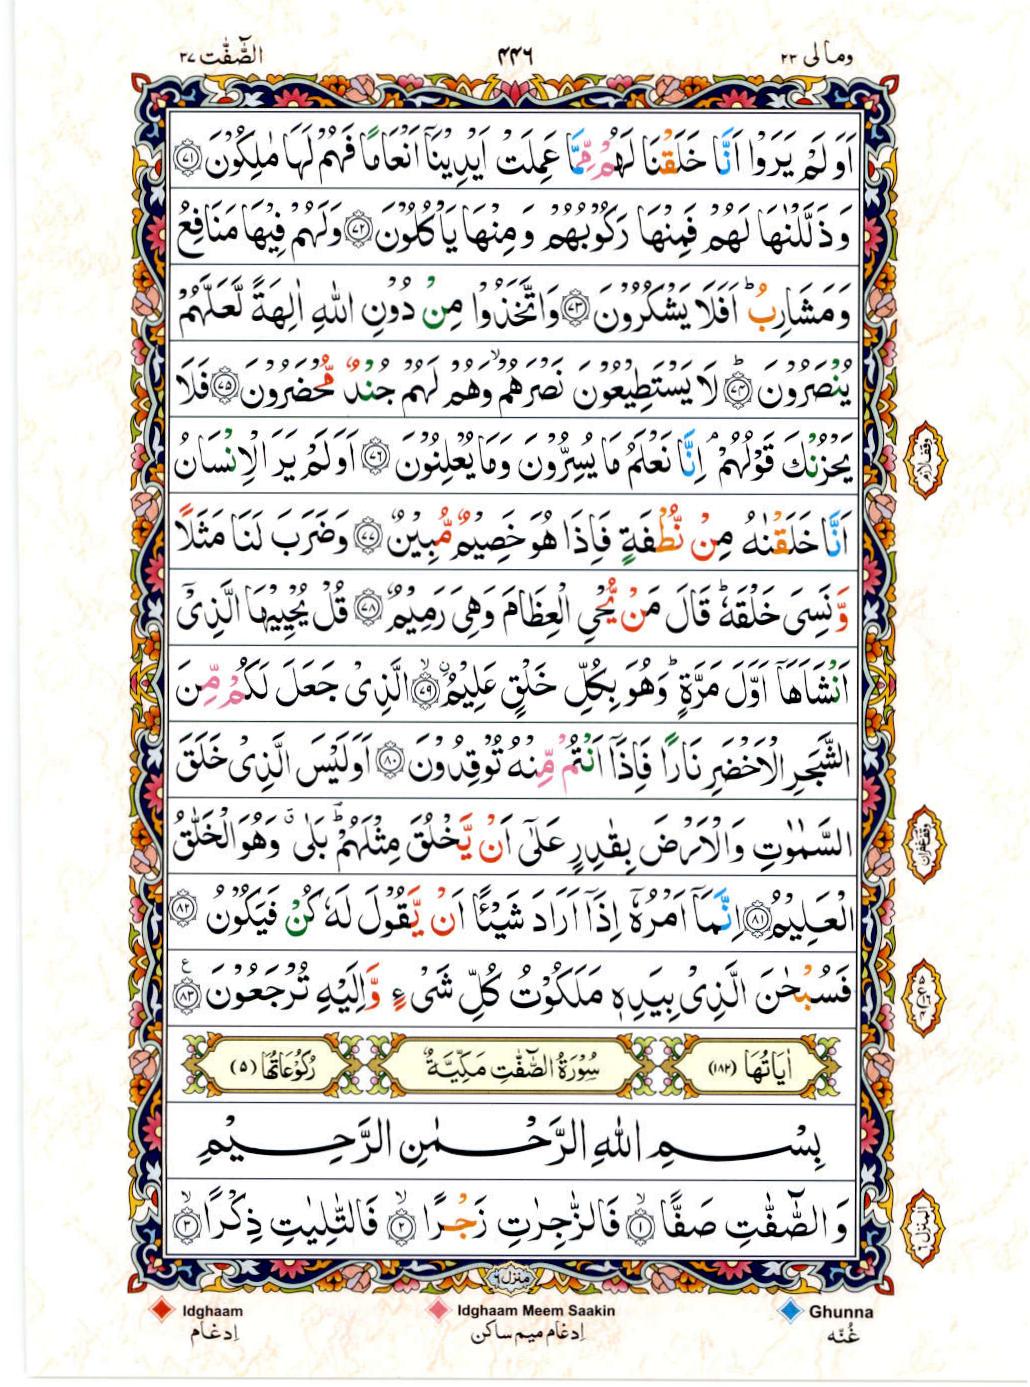 ومالی ۲۳ ۴۴۶ الصّٰٓفّٰت ۳۷
اَوَلَمْ يَرَوْا اَنَّا خَلَقْنَا لَهُمْ مِّمَّا عَمِلَتْ اَيْدِيْنَاۤ اَنْعَامًا فَهُمْ لَهَا مٰلِكُوْنَ ﴿۷۱﴾
وَذَلَّلْنٰهَا لَهُمْ فَمِنْهَا رَكُوْبُهُمْ وَمِنْهَا يَاْكُلُوْنَ ﴿۷۲﴾ وَلَهُمْ فِيْهَا مَنَافِعُ
وَمَشَارِبُ ؕ اَفَلَا يَشْكُرُوْنَ ﴿۷۳﴾ وَاتَّخَذُوْا مِنْ دُوْنِ اللّٰهِ اٰلِهَةً لَّعَلَّهُمْ
يُنْصَرُوْنَ ؕ ﴿۷۴﴾ لَا يَسْتَطِيْعُوْنَ نَصْرَهُمْ ۙ وَهُمْ لَهُمْ جُنْدٌ مُّحْضَرُوْنَ ﴿۷۵﴾ فَلَا
يَحْزُنْكَ قَوْلُهُمْ ۘ اِنَّا نَعْلَمُ مَا يُسِرُّوْنَ وَمَا يُعْلِنُوْنَ ﴿۷۶﴾ اَوَلَمْ يَرَ الْاِنْسَانُ
وقف لازم
اَنَّا خَلَقْنٰهُ مِنْ نُّطْفَةٍ فَاِذَا هُوَ خَصِيْمٌ مُّبِيْنٌ ﴿۷۷﴾ وَضَرَبَ لَنَا مَثَلًا
وَّنَسِىَ خَلْقَهٗ ؕ قَالَ مَنْ يُّحْىِ الْعِظَامَ وَهِىَ رَمِيْمٌ ﴿۷۸﴾ قُلْ يُحْيِيْهَا الَّذِىْۤ
اَنْشَاَهَاۤ اَوَّلَ مَرَّةٍ ؕ وَهُوَ بِكُلِّ خَلْقٍ عَلِيْمُ ۙ ﴿۷۹﴾ الَّذِىْ جَعَلَ لَكُمْ مِّنَ
الشَّجَرِ الْاَخْضَرِ نَارًا فَاِذَاۤ اَنْتُمْ مِّنْهُ تُوْقِدُوْنَ ﴿۸۰﴾ اَوَلَيْسَ الَّذِىْ خَلَقَ
السَّمٰوٰتِ وَالْاَرْضَ بِقٰدِرٍ عَلٰۤى اَنْ يَّخْلُقَ مِثْلَهُمْ ؕ بَلٰى ۗ وَهُوَ الْخَلّٰقُ
وقف غفران
الْعَلِيْمُ ﴿۸۱﴾ اِنَّمَاۤ اَمْرُهٗۤ اِذَاۤ اَرَادَ شَيْـًٔا اَنْ يَّقُوْلَ لَهٗ كُنْ فَيَكُوْنُ ﴿۸۲﴾
فَسُبْحٰنَ الَّذِىْ بِيَدِهٖ مَلَكُوْتُ كُلِّ شَىْءٍ وَّاِلَيْهِ تُرْجَعُوْنَ ﴿۸۳﴾
اٰيَاتُهَا (۱۸۲) سُوْرَةُ الصّٰٓفّٰتِ مَكِّيَّةٌ رُكُوْعَاتُهَا (۵)
بِسْمِ اللّٰهِ الرَّحْمٰنِ الرَّحِيْمِ
وَالصّٰٓفّٰتِ صَفًّا ۙ ﴿۱﴾ فَالزّٰجِرٰتِ زَجْرًا ۙ ﴿۲﴾ فَالتّٰلِيٰتِ ذِكْرًا ۙ ﴿۳﴾
المنزل ۶
منزل ۶
Idghaam Idghaam Meem Saakin Ghunna
اِدغام اِدغام میم ساکن غُنّه